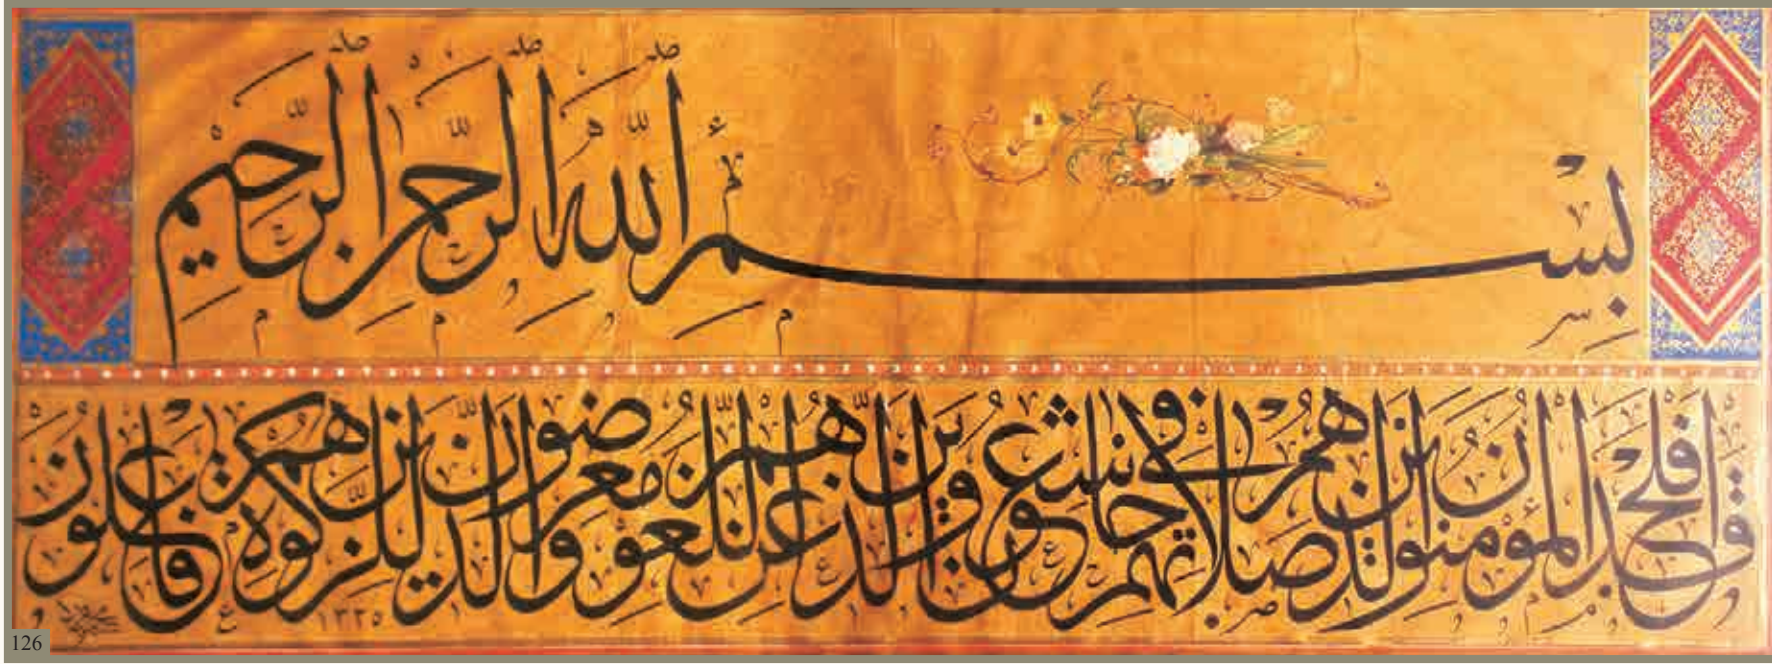 بِسْمِ اللّٰهِ الرَّحْمٰنِ الرَّحِيْمِ
قَدْ اَفْلَحَ الْمُؤْمِنُونَ الَّذِينَ هُمْ فِى صَلَاتِهِمْ خَاشِعُونَ وَالَّذِينَ هُمْ عَنِ اللَّغْوِ مُعْرِضُونَ وَالَّذِينَ هُمْ لِلزَّكٰوةِ فَاعِلُونَ
١٣٢٥
126